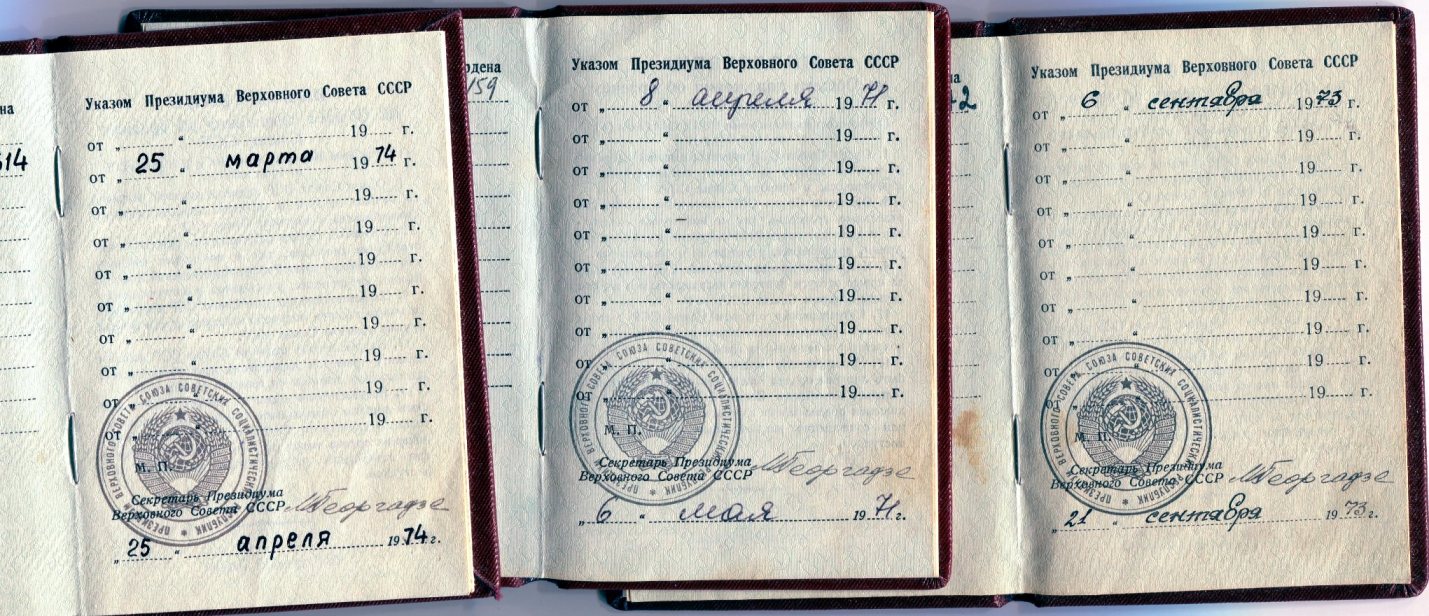 на
614
Указом Президиума Верховного Совета СССР
от „ “ 19 г.
от „ 25 “ марта 19 74 г.
от „ “ 19 г.
от „ “ 19 г.
от „ “ 19 г.
от „ “ 19 г.
от „ “ 19 г.
от „ “ 19 г.
от „ “ 19 г.
от „ “ 19 г.
М. П.
Секретарь Президиума
Верховного Совета СССР
МГеоргадзе
„ 25 “ апреля 19 74 г.
ПРЕЗИДИУМ ВЕРХОВНОГО СОВЕТА СОЮЗА СОВЕТСКИХ СОЦИАЛИСТИЧЕСКИХ РЕСПУБЛИК
рдена
159
Указом Президиума Верховного Совета СССР
от „ 8 “ апреля 19 71 г.
от „ “ 19 г.
от „ “ 19 г.
от „ “ 19 г.
от „ “ 19 г.
от „ “ 19 г.
от „ “ 19 г.
от „ “ 19 г.
от „ “ 19 г.
от „ “ 19 г.
М. П.
Секретарь Президиума
Верховного Совета СССР
МГеоргадзе
„ 6 “ мая 19 71 г.
ПРЕЗИДИУМ ВЕРХОВНОГО СОВЕТА СОЮЗА СОВЕТСКИХ СОЦИАЛИСТИЧЕСКИХ РЕСПУБЛИК
на
2
Указом Президиума Верховного Совета СССР
от „ 6 “ сентября 19 73 г.
от „ “ 19 г.
от „ “ 19 г.
от „ “ 19 г.
от „ “ 19 г.
от „ “ 19 г.
от „ “ 19 г.
от „ “ 19 г.
от „ “ 19 г.
от „ “ 19 г.
М. П.
Секретарь Президиума
Верховного Совета СССР
МГеоргадзе
„ 21 “ сентября 19 73 г.
ПРЕЗИДИУМ ВЕРХОВНОГО СОВЕТА СОЮЗА СОВЕТСКИХ СОЦИАЛИСТИЧЕСКИХ РЕСПУБЛИК